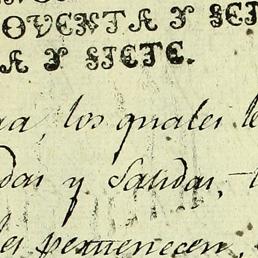 OVENTA Y SEI
A Y SIETE.
los quales
y Salidas,
pertenecen,